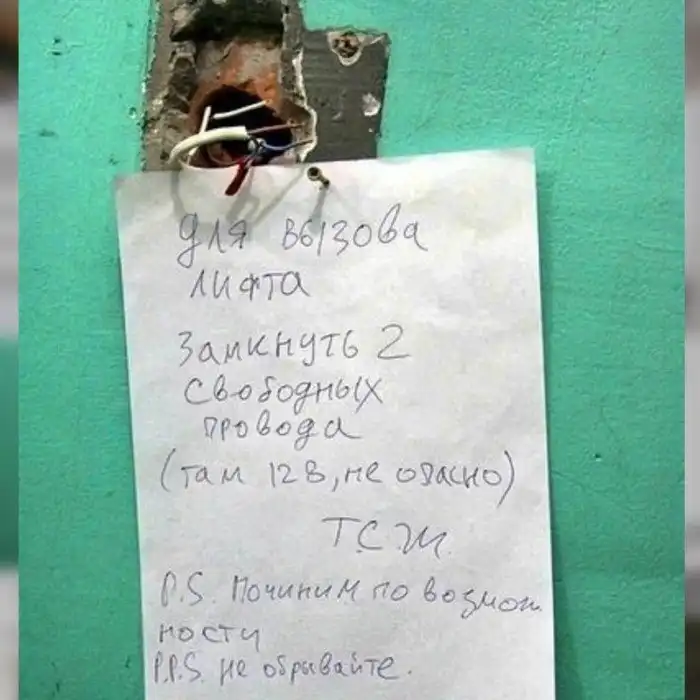 Для вызова
лифта
Замкнуть 2
свободных
провода
(там 12В, не опасно)
Т.С.Ж.
P.S. Починим по возмож
ности
P.P.S. не обрывайте.